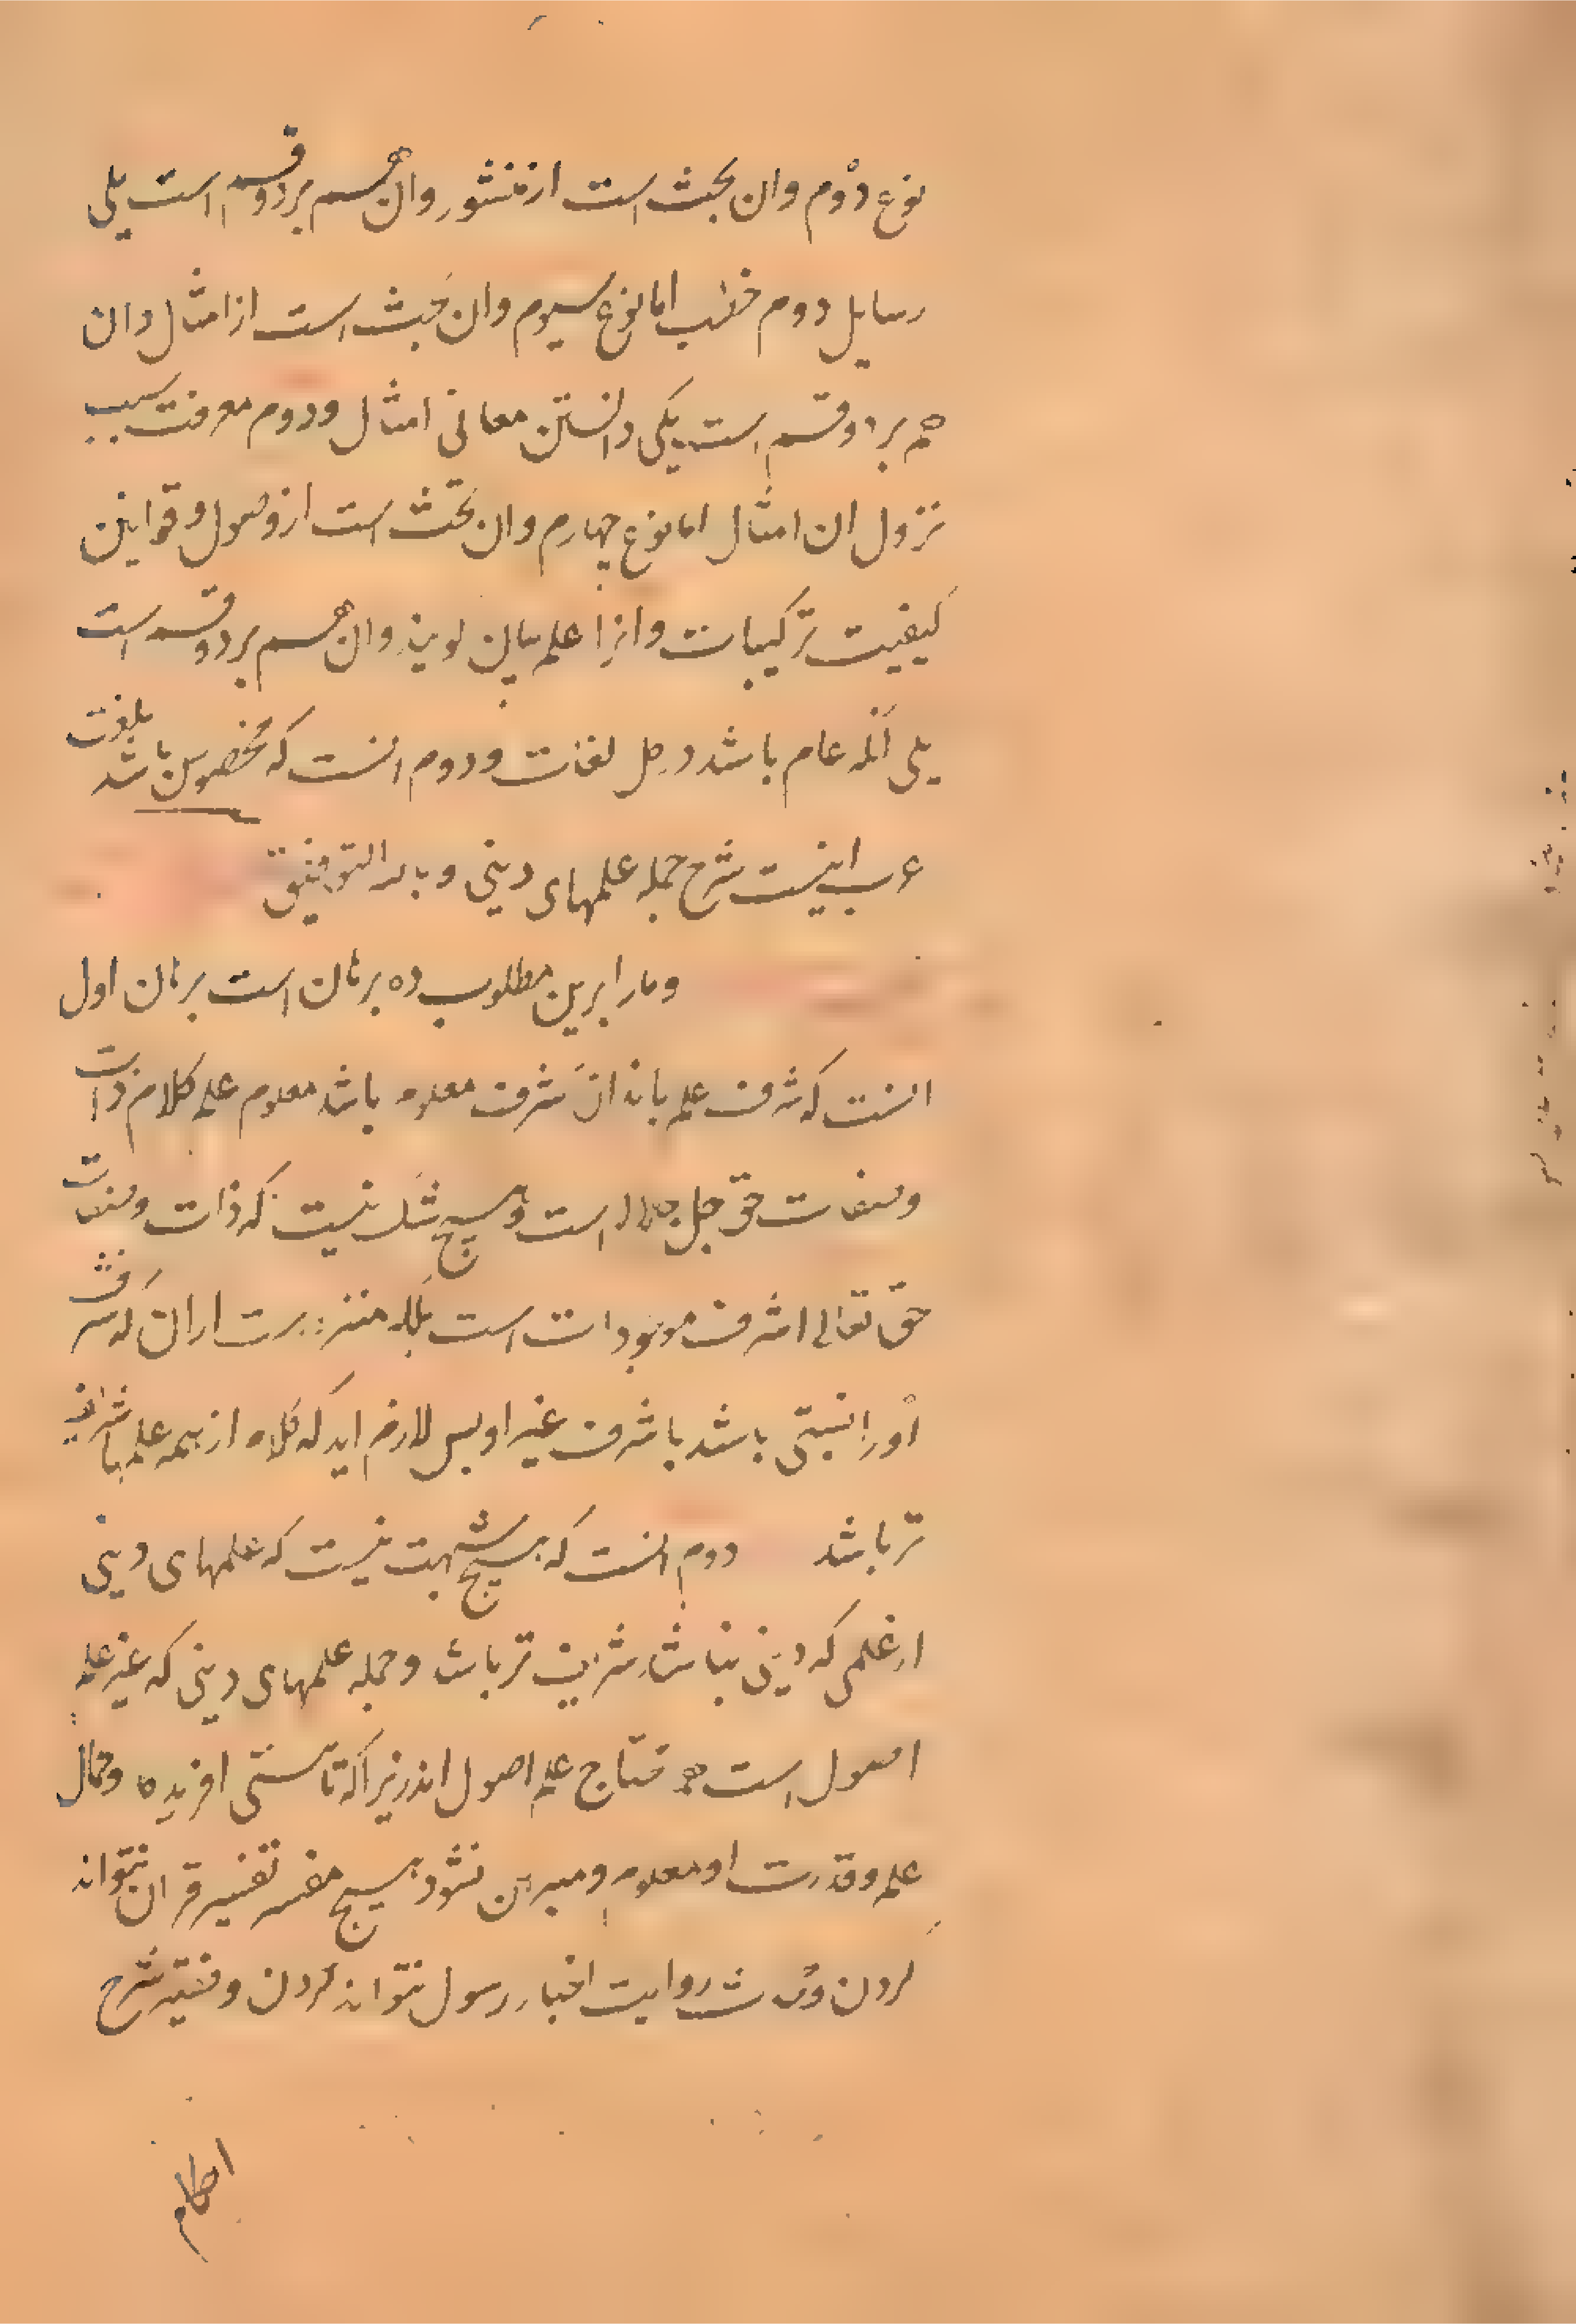 نوع دوم وان بحث است از منثور وان هم بر دو قسم است یکی
رسایل دوم خطب اما نوع سیوم وان بحث است از امثال وان
هم بر دو قسم است یکی دانستن معانی امثال و دوم معرفت سبب
نزول ان امثال اما نوع چهارم وان بحث است از وصول و قوانین
کیفیت ترکیبات وانرا علم بیان کویند وان هم بر دو قسم است
یکی آنکه عام باشد در کل لغات و دوم انست که مخصوص باشد بلغت
عرب اینست شرح جمله علمهای دینی و بالله التوفیق
ومارا برین مطلوب ده برهان است برهان اول
انست که شرف علم باندازه شرف معلوم باشد معلوم علم کلام ذات
وصفات حق جل جلاله است و هیچ شک نیست که ذات وصفات
حق تعالی اشرف موجودات است بلکه منزه است از ان که شرف
اورا نسبتی باشد با شرف غیر او پس لازم اید که کلام از همه علمها شریف
تر باشد دوم انست که هیچ شبهت نیست که علمهای دینی
از علمی که دینی نباشد شریف تر باشد و جمله علمهای دینی که غیر علم
اصول است همه محتاج علم اصول اند زیرا که تا هستی افریده وکمال
علم وقدرت او معلوم ومبرهن نشود هیچ مفسر تفسیر قران نتواند
کردن ومحدث روایت اخبار رسول نتواند کردن و فقیه شرح
احکام